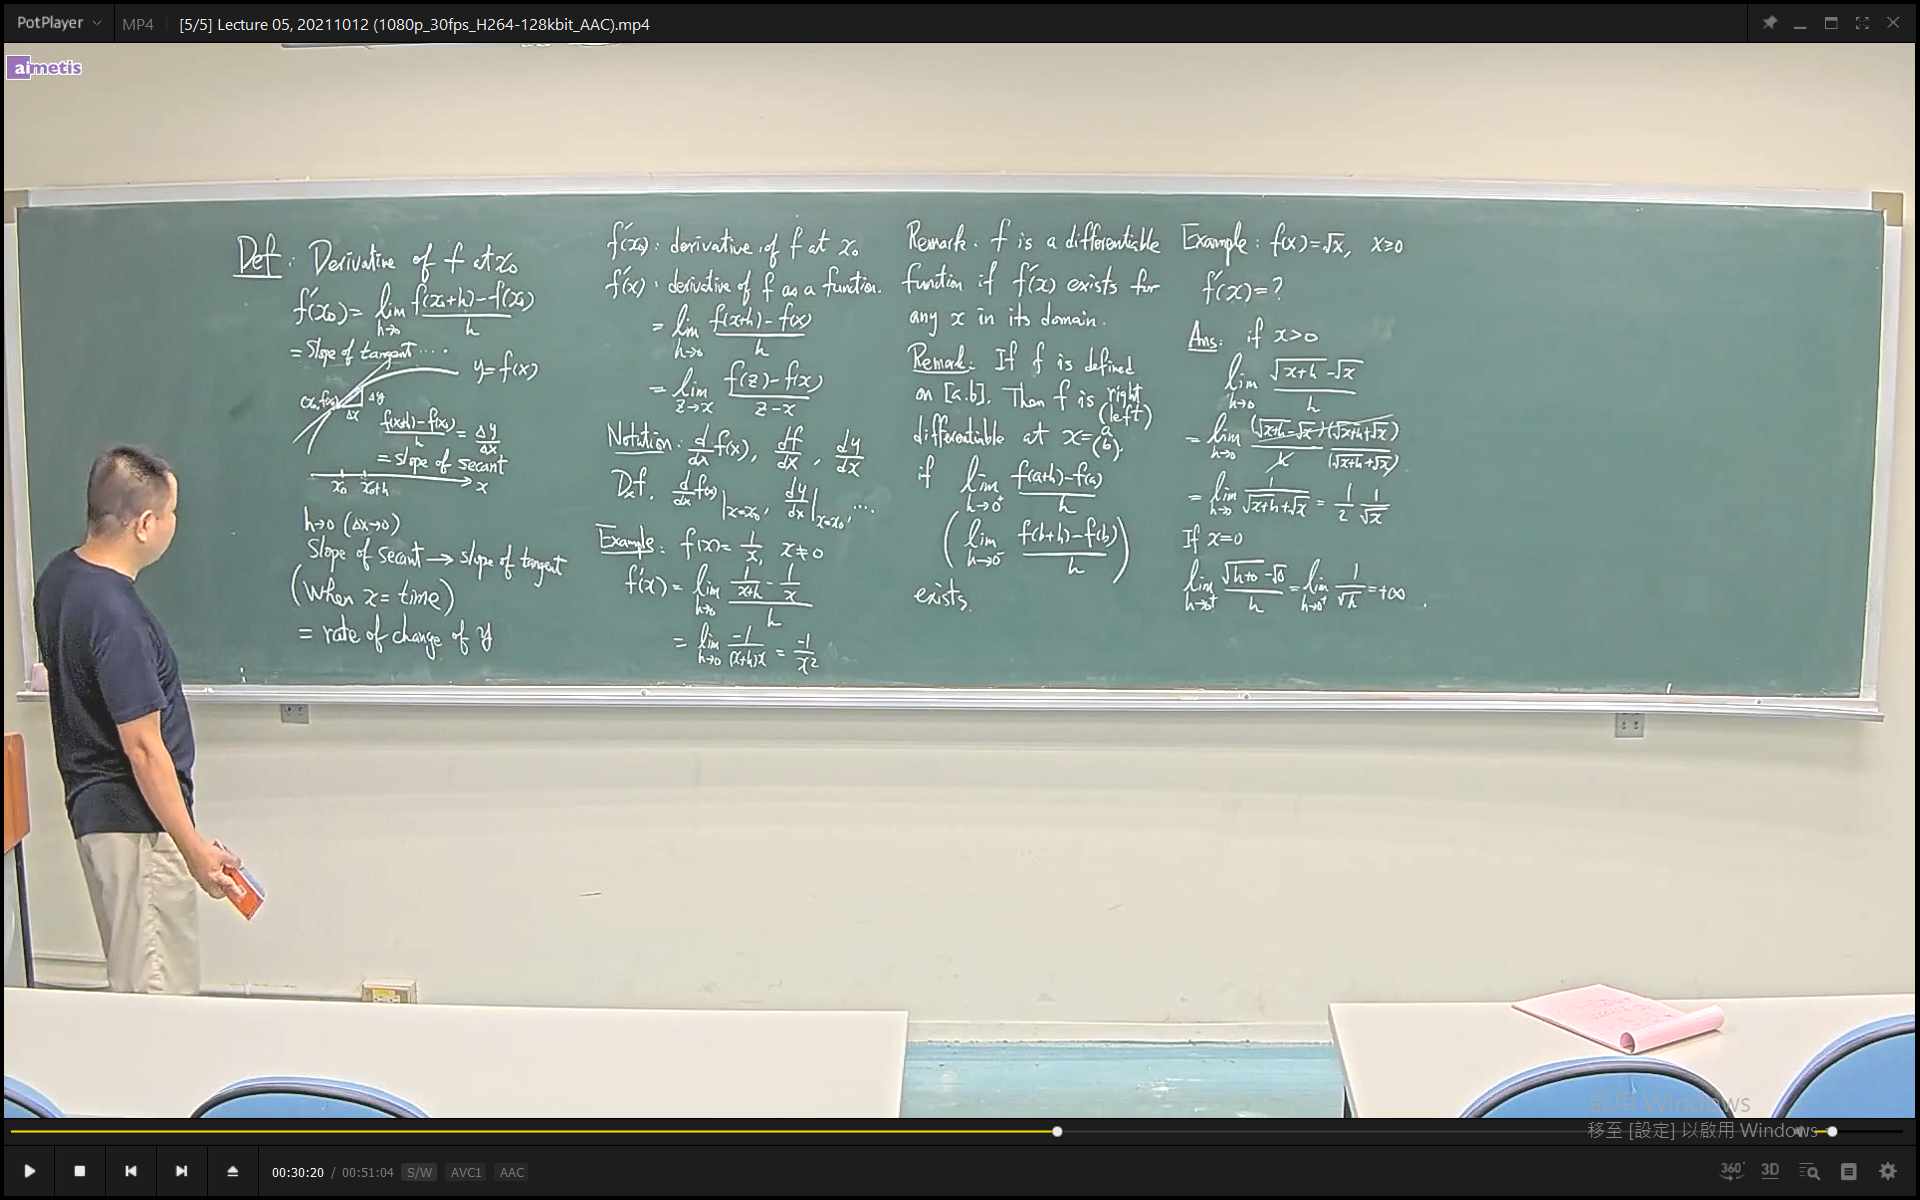 PotPlayer
MP4
[5/5] Lecture 05, 20211012 (1080p_30fps_H264-128kbit_AAC).mp4
aimetis
Def: Derivative of f at x₀
f'(x₀) = lim h→0 (f(x₀+h) - f(x₀))/h
= Slope of tangent ....
y = f(x)
(x₀, f(x₀))
Δy
Δx
(f(x₀+h) - f(x₀))/h = Δy/Δx
= slope of secant
x₀ x₀+h x
h→0 (Δx→0)
Slope of secant → slope of tangent
(When x = time)
= rate of change of y
f'(x₀): derivative of f at x₀
f'(x): derivative of f as a function.
= lim h→0 (f(x+h) - f(x))/h
= lim z→x (f(z) - f(x))/(z - x)
Notation: d/dx f(x), df/dx, dy/dx
Dₓf, d/dx f(x)|x=x₀, dy/dx|x=x₀, ....
Example: f(x) = 1/x, x ≠ 0
f'(x) = lim h→0 (1/(x+h) - 1/x)/h
= lim h→0 -1/((x+h)x) = -1/x²
Remark: f is a differentiable
function if f'(x) exists for
any x in its domain.
Remark: If f is defined
on [a.b]. Then f is right
(left)
differentiable at x = a
(b)
if lim h→0⁺ (f(a+h) - f(a))/h
(lim h→0⁻ (f(b+h) - f(b))/h)
exists.
Example: f(x) = √x, x ≥ 0
f'(x) = ?
Ans: if x > 0
lim h→0 (√(x+h) - √x)/h
= lim h→0 (√(x+h) - √x)(√(x+h) + √x)/(h(√(x+h) + √x))
= lim h→0 1/(√(x+h) + √x) = 1/2 1/√x
If x = 0
lim h→0⁺ (√(h+0) - √0)/h = lim h→0⁺ 1/√h = +∞
啟用 Windows
移至 [設定] 以啟用 Windows
00:30:20 / 00:51:04 S/W AVC1 AAC
360° 3D